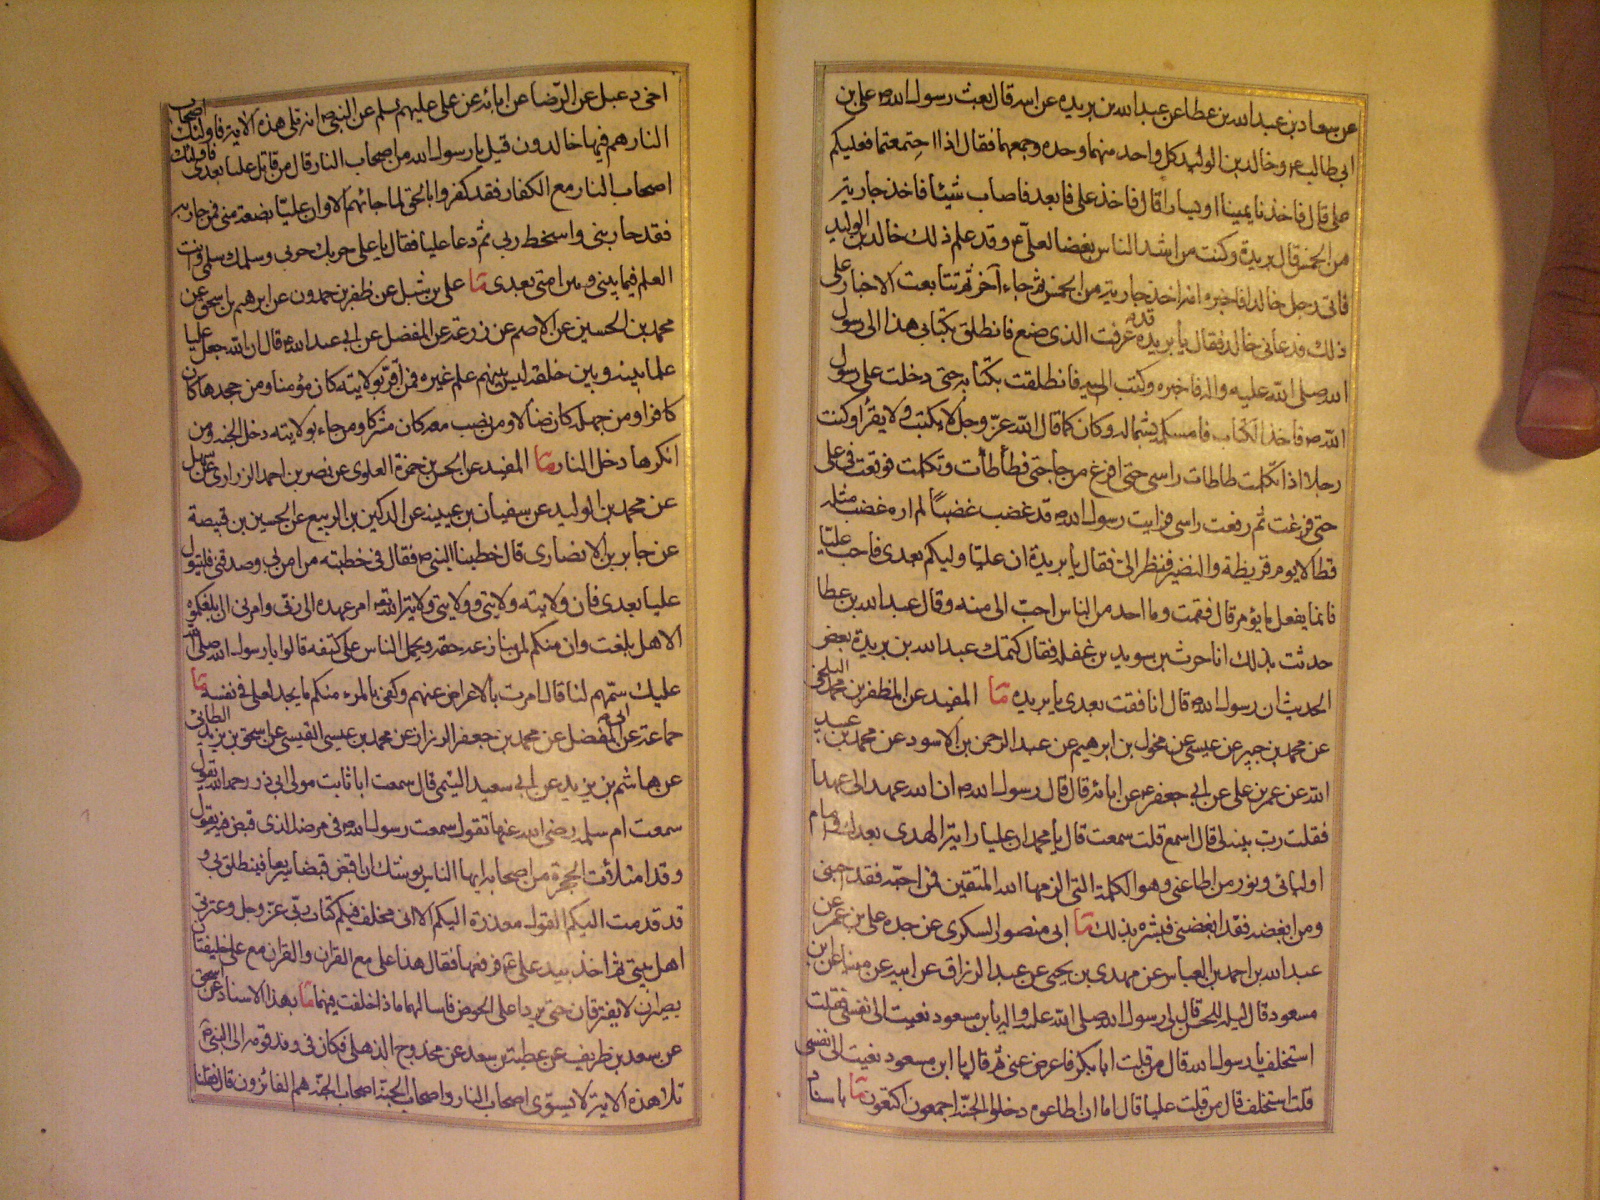 عن سعاد بن عبد الله بن عطا عن عبد الله بن بريده عن ابيه قال بعث رسول الله ص علي بن
ابي طالب ع وخالد بن الوليد كل واحد منهما وحده وجمعهما فقال اذا اجتمعتما فعليكم
علي قال فاخذنا يمينا او يسارا قال فاخذ علي فابعد فاصاب شيئا فاخذ جارية
من الخمس قال بريدة وكنت من اشد الناس بغضا لعلي ع وقد علم ذلك خالد بن الوليد
فاتى رجل خالدا فاخبره انه اخذ جارية من الخمس ثم جاء آخر ثم تتابعت الاخبار على
ذلك فدعاني خالد فقال يا بريدة قد عرفت الذي صنع فانطلق بكتابي هذا الى رسول
الله صلى الله عليه واله فاخبره وكتب اليه فانطلقت بكتابه حتى دخلت على رسول
الله ص فاخذ الكتاب فامسكه بشماله وكان كما قال الله عز وجل لا يكتب ولا يقرأ وكنت
رجلا اذا تكلمت طاطات راسي حتى افرغ من حاجتي فطأطأت وتكلمت فوقعت في علي
حتى فرغت ثم رفعت راسي فرايت رسول الله ص قد غضب غضبًا لم اره غضب مثله
قط الا يوم قريظة والنضير فنظر الي فقال يا بريدة ان عليا وليكم بعدي فاحب عليا
فانما يفعل ما يؤمر قال فقمت وما احد من الناس احب الي منه وقال عبد الله بن عطا
حدثت بذلك انا حرث بن سويد بن غفله فقال كتمك عبد الله بن بريدة بعض
الحديث ان رسول الله ص قال انافقت بعدي يا بريده ما المفيد عن المظفر بن محمد البلخي
عن محمد بن جبير عن عيسى عن مخول بن ابرهيم عن عبد الرحمن بن الاسود عن محمد بن عبيد
الله عن عمر بن علي عن ابي جعفر ع عن ابائه قال قال رسول الله ص ان الله عهد الي عهدا
فقلت رب بينه لي قال اسمع قلت سمعت قال يا محمد ان عليا راية الهدى بعدك وامام
اوليائي ونور من اطاعني وهو الكلمة التي الزمها الله المتقين فمن احبه فقد احبني
ومن ابغضه فقد ابغضني فبشره بذلك ما ابي منصور السكري عن جده علي بن عمر عن
عبد الله بن احمد بن العباس عن مهدي بن يحيى عن عبد الرزاق عن ابيه عن مينا عن ابن
مسعود قال ليلة الجن قال لي رسول الله صلى الله عليه واله يا بن مسعود نعيت الي نفسي فقلت
استخلف يا رسول الله قال من قلت ابا بكر فاعرض عني ثم قال يا ابن مسعود نعيت الي نفسي
قلت استخلف قال من قلت عليا قال اما ان اطاعوه دخلوا الجنة اجمعون اكتعون ما باسناد
اخي دعبل عن الرضا عن ابائه عن علي عليهم سلم عن النبي ص انه تلى هذه الاية فاولئك اصحاب
النار هم فيها خالدون قيل يا رسول الله من اصحاب النار قال من قاتل عليا بعدي فاولئك
اصحاب النار مع الكفار فقد كفروا بالحق لما جائهم الا وان عليا بضعة مني فمن حاربه
فقد حاربني واسخط ربي ثم دعا عليا فقال يا علي حربك حربي وسلمك سلمي وانت
العلم فيما بيني وبين امتي بعدي ما علي بن شبل عن ظفر بن حمدون عن ابرهيم بن اسحق عن
محمد بن الحسين عن الاصم عن زرعة عن المفضل عن ابي عبد الله ع قال ان الله جعل عليا
علما بينه وبين خلقه ليس بينهم علم غيره فمن اقر بولايته كان مؤمنا ومن جحدها كان
كافرا ومن جهله كان ضالا ومن نصب معه كان مشركا ومن جاء بولايته دخل الجنة ومن
انكرها دخل النار ما المفيد عن الحسن بن حمزة العلوي عن نصر بن احمد الزراري عن سهل
عن محمد بن الوليد عن سفيان بن عيينه عن الدكين بن الربيع عن الحسين بن قبيصة
عن جابر بن الانصاري قال خطبنا النبي ص فقال في خطبته من امن بي وصدقني فليتول
عليا بعدي فان ولايته ولايتي وولايتي ولاية الله امر عهده الي ربي وامرني ان ابلغكموه
الا هل بلغت وان منكم لمن ينازعه حقه ويحمل الناس على كتفه قالوا يا رسول الله صلى الله
عليك سمهم لنا قال امرت بالاعراض عنهم وكفى بالمرء منكم ما يجد لعلي في نفسه ما
جماعة عن ابي المفضل عن محمد بن جعفر الرزاز عن محمد بن عيسى القيسي عن اسحق بن يزيد الطائي
عن هاشم بن بريد عن ابي سعيد التيمي قال سمعت ابا ثابت مولى ابي ذر رحمه الله يقول
سمعت ام سلمة رضي الله عنها تقول سمعت رسول الله ص في مرضه الذي قبض فيه يقول
وقد امتلأت الحجرة من اصحابه ايها الناس يوشك ان اقبض قبضا سريعا فينطلق بي و
قد قدمت اليكم القول معذرة اليكم الا اني مخلف فيكم كتاب ربي عز وجل وعترتي
اهل بيتي ثم اخذ بيد علي ع فرفعها فقال هذا علي مع القران والقران مع علي خليفتان
بصيران لا يفترقان حتى يردا علي الحوض فاسالهما ماذا خلفت فيهما ما بهذا الاسناد عن اسحق
عن سعد بن ظريف عن عطية بن سعد عن محدوج الذهلي فكان في وفد قومه الى النبي ص
تلا هذه الاية لا يستوي اصحاب النار واصحاب الجنة اصحاب الجنة هم الفائزون قال فقلنا